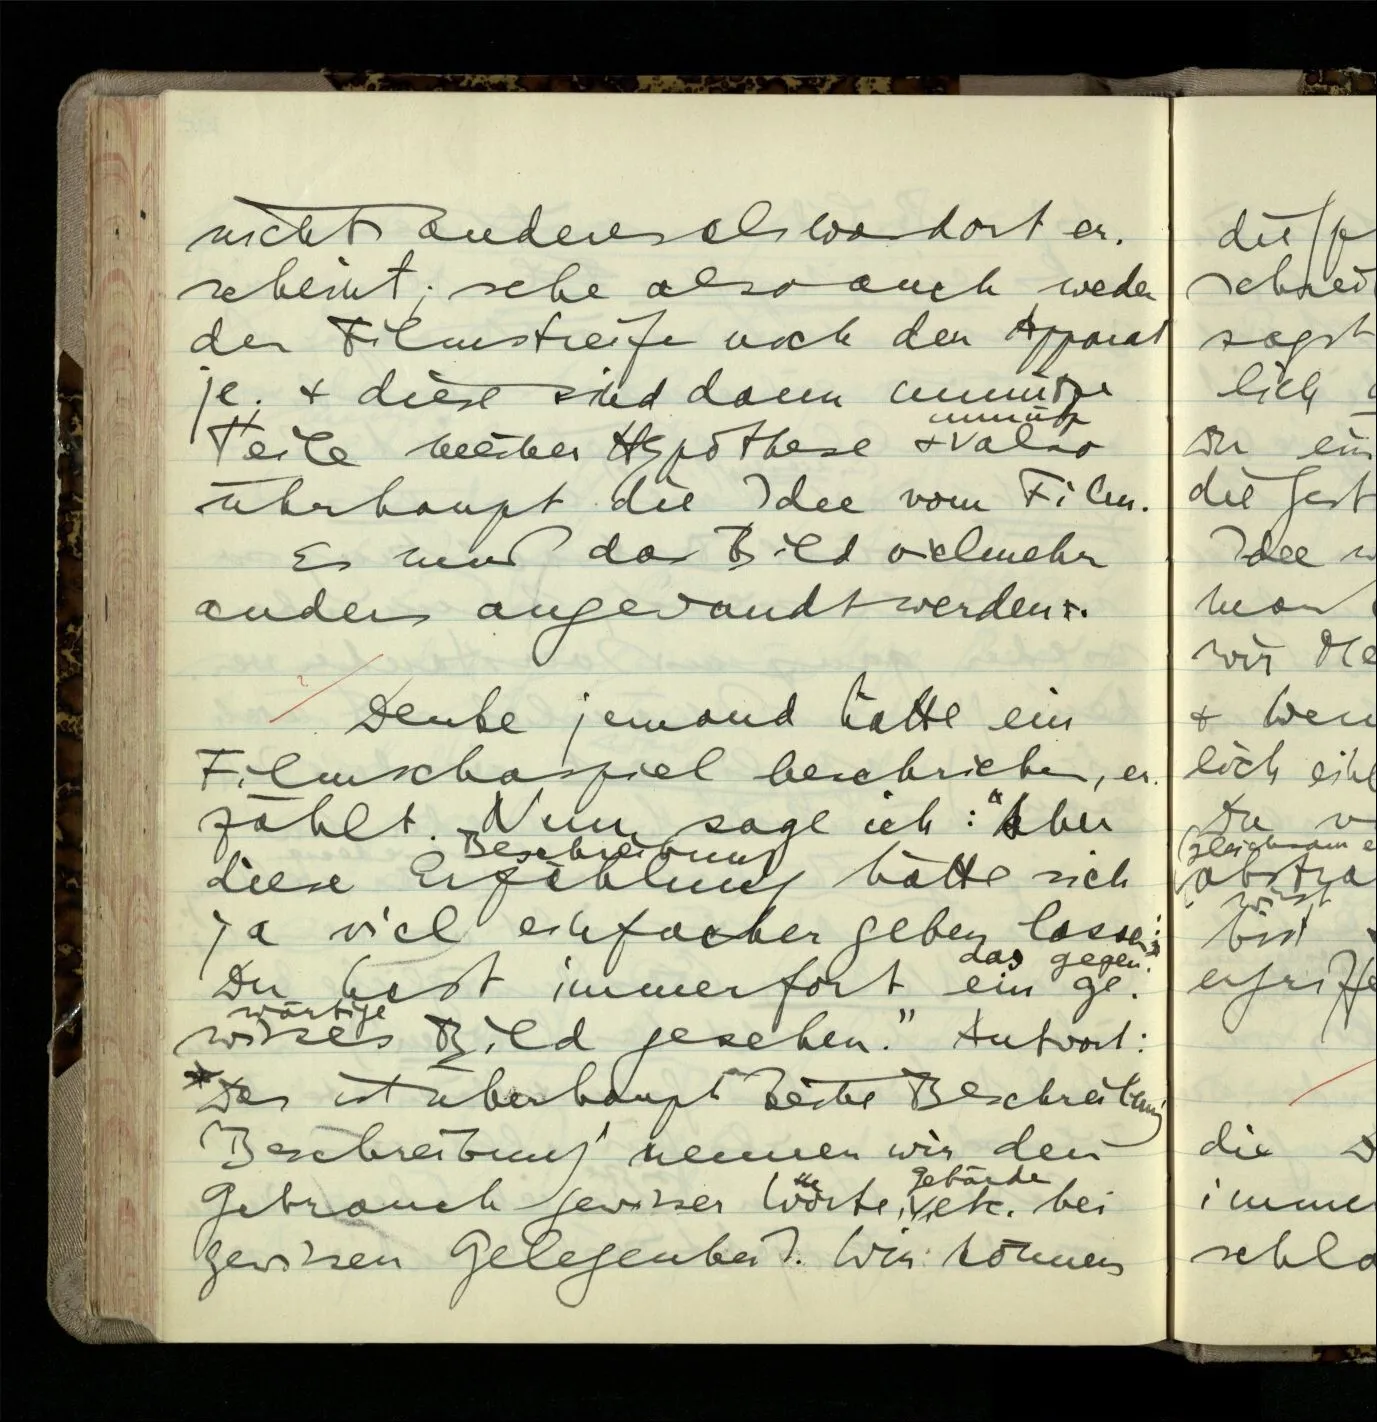 nichts anderes als was dort er-
scheint; sehe also auch weder
den Filmstreifen noch den Apparat
je. + diese sind dann unnütze
Teile meiner Hypothese + also
unnütz
überhaupt die Idee vom Film.
Es muß das Bild vielmehr
anders angewandt werden.
Denke jemand hätte ein
Filmschaspiel beschrieben, er-
zählt. Nun sage ich: "Aber
Beschreibung
diese Erzählung hätte sich
ja viel einfacher geben lassen:
das gegen-
Du hast immerfort ein ge-
wärtige
wisses Bild gesehen." Antwort:
Das ist überhaupt keine Beschreibung
'Beschreibung' nennen wir den
Gebärde
Gebrauch gewisser Wörter, etc. bei
gewissen Gelegenheit. Wir können
die
schrei
sagst
lich
Du ein
die
Idee
wir
+
lich
Du
gleichsam
abstra
wirst
bist
ergriffe
die
imme
schla